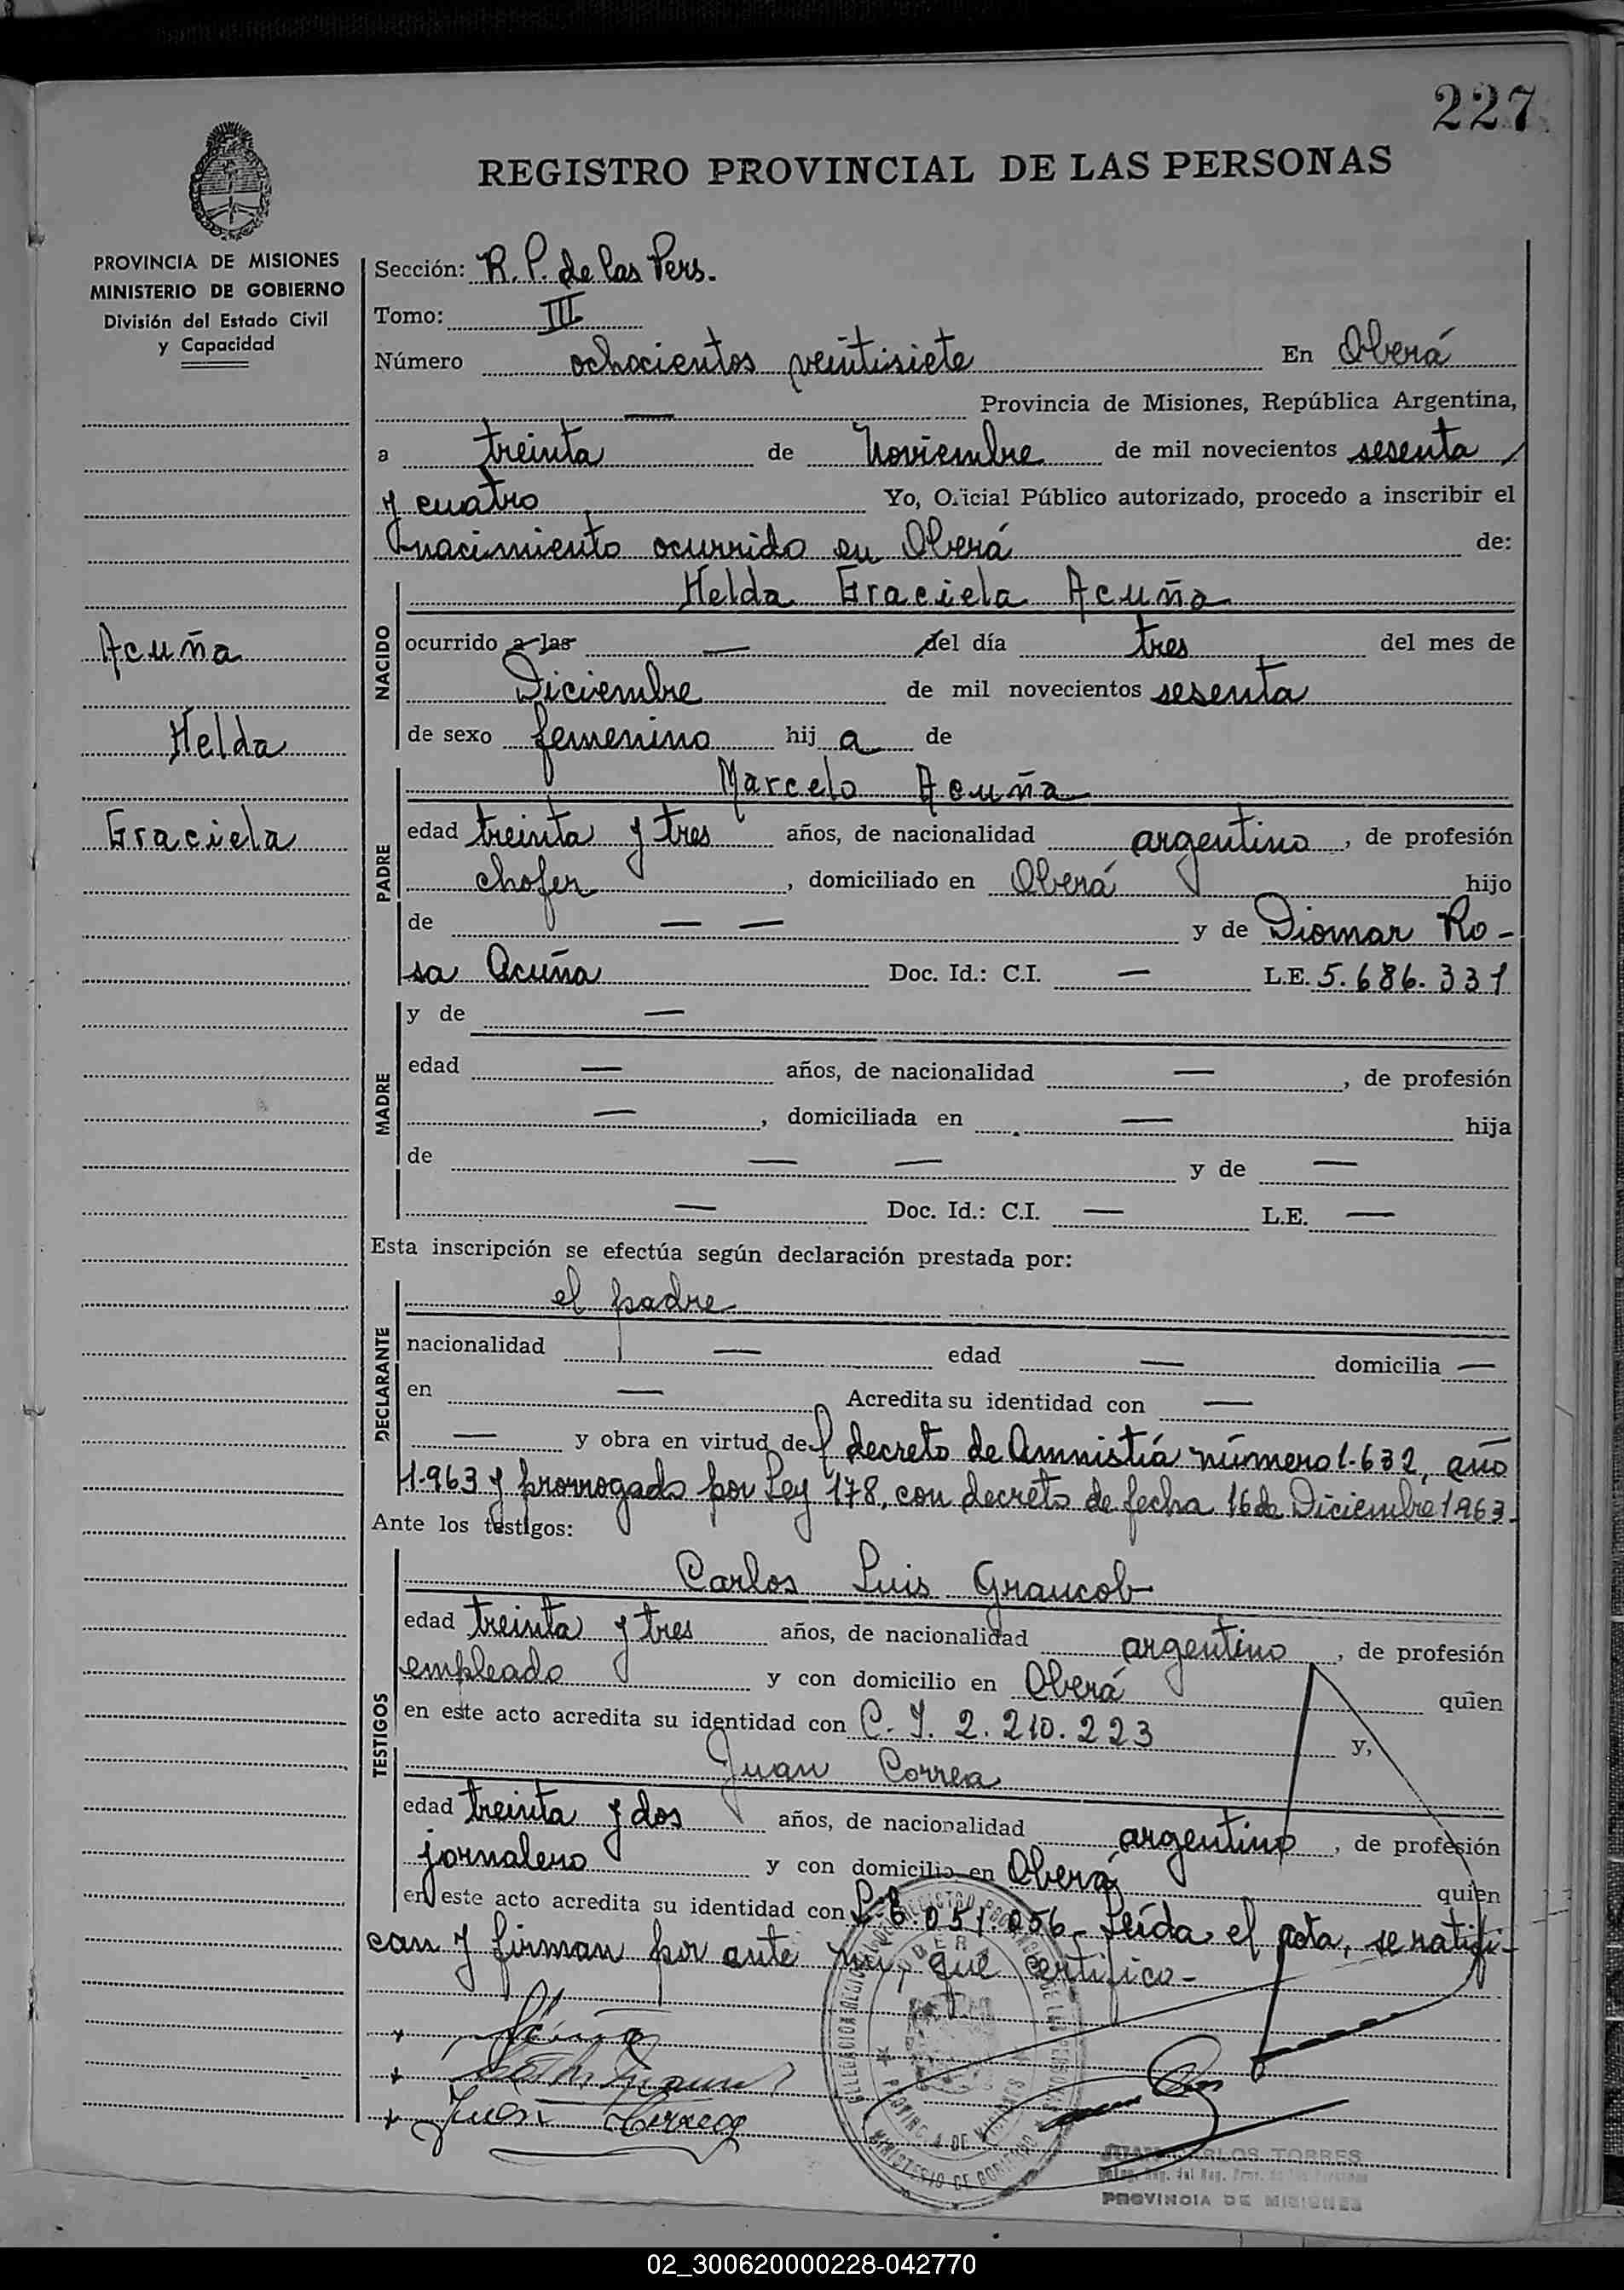 227
REGISTRO PROVINCIAL DE LAS PERSONAS
PROVINCIA DE MISIONES
MINISTERIO DE GOBIERNO
División del Estado Civil
y Capacidad
Acuña
Helda
Graciela
Sección: R. P. de las Pers.
Tomo: III
Número ochocientos veintisiete En Oberá
— Provincia de Misiones, República Argentina,
a treinta de Noviembre de mil novecientos sesenta
y cuatro Yo, Oficial Público autorizado, procedo a inscribir el
nacimiento ocurrido en Oberá de:
NACIDO
Helda Graciela Acuña
ocurrido a las — del día tres del mes de
Diciembre de mil novecientos sesenta
de sexo femenino hij a de
PADRE
Marcelo Acuña
edad treinta y tres años, de nacionalidad argentino, de profesión
chofer, domiciliado en Oberá hijo
de — — y de Diomar Ro-
sa Acuña Doc. Id.: C.I. — L.E. 5.686.331
MADRE
y de —
edad — años, de nacionalidad —, de profesión
—, domiciliada en — hija
de — — y de —
— Doc. Id.: C.I. — L.E. —
Esta inscripción se efectúa según declaración prestada por:
DECLARANTE
el padre
nacionalidad — edad — domicilia —
en — Acredita su identidad con —
— y obra en virtud del decreto de Amnistía número 1.632, año
1.963 y prorrogado por Ley 178, con decreto de fecha 16 de Diciembre 1963.
Ante los testigos:
TESTIGOS
Carlos Luis Graucob
edad treinta y tres años, de nacionalidad argentino, de profesión
empleado y con domicilio en Oberá quien
en este acto acredita su identidad con C. I. 2.210.223 y,
Juan Correa
edad treinta y dos años, de nacionalidad argentino, de profesión
jornalero y con domicilio en Oberá quien
en este acto acredita su identidad con 051.056- Leída el acta, se ratifi-
can y firman por ante mí, que certifico-
Juan Correa
CARLOS TORRES
PROVINCIA DE MISIONES
PROVINCIA DE MISIONES
MINISTERIO DE GOBIERNO
02_300620000228-042770